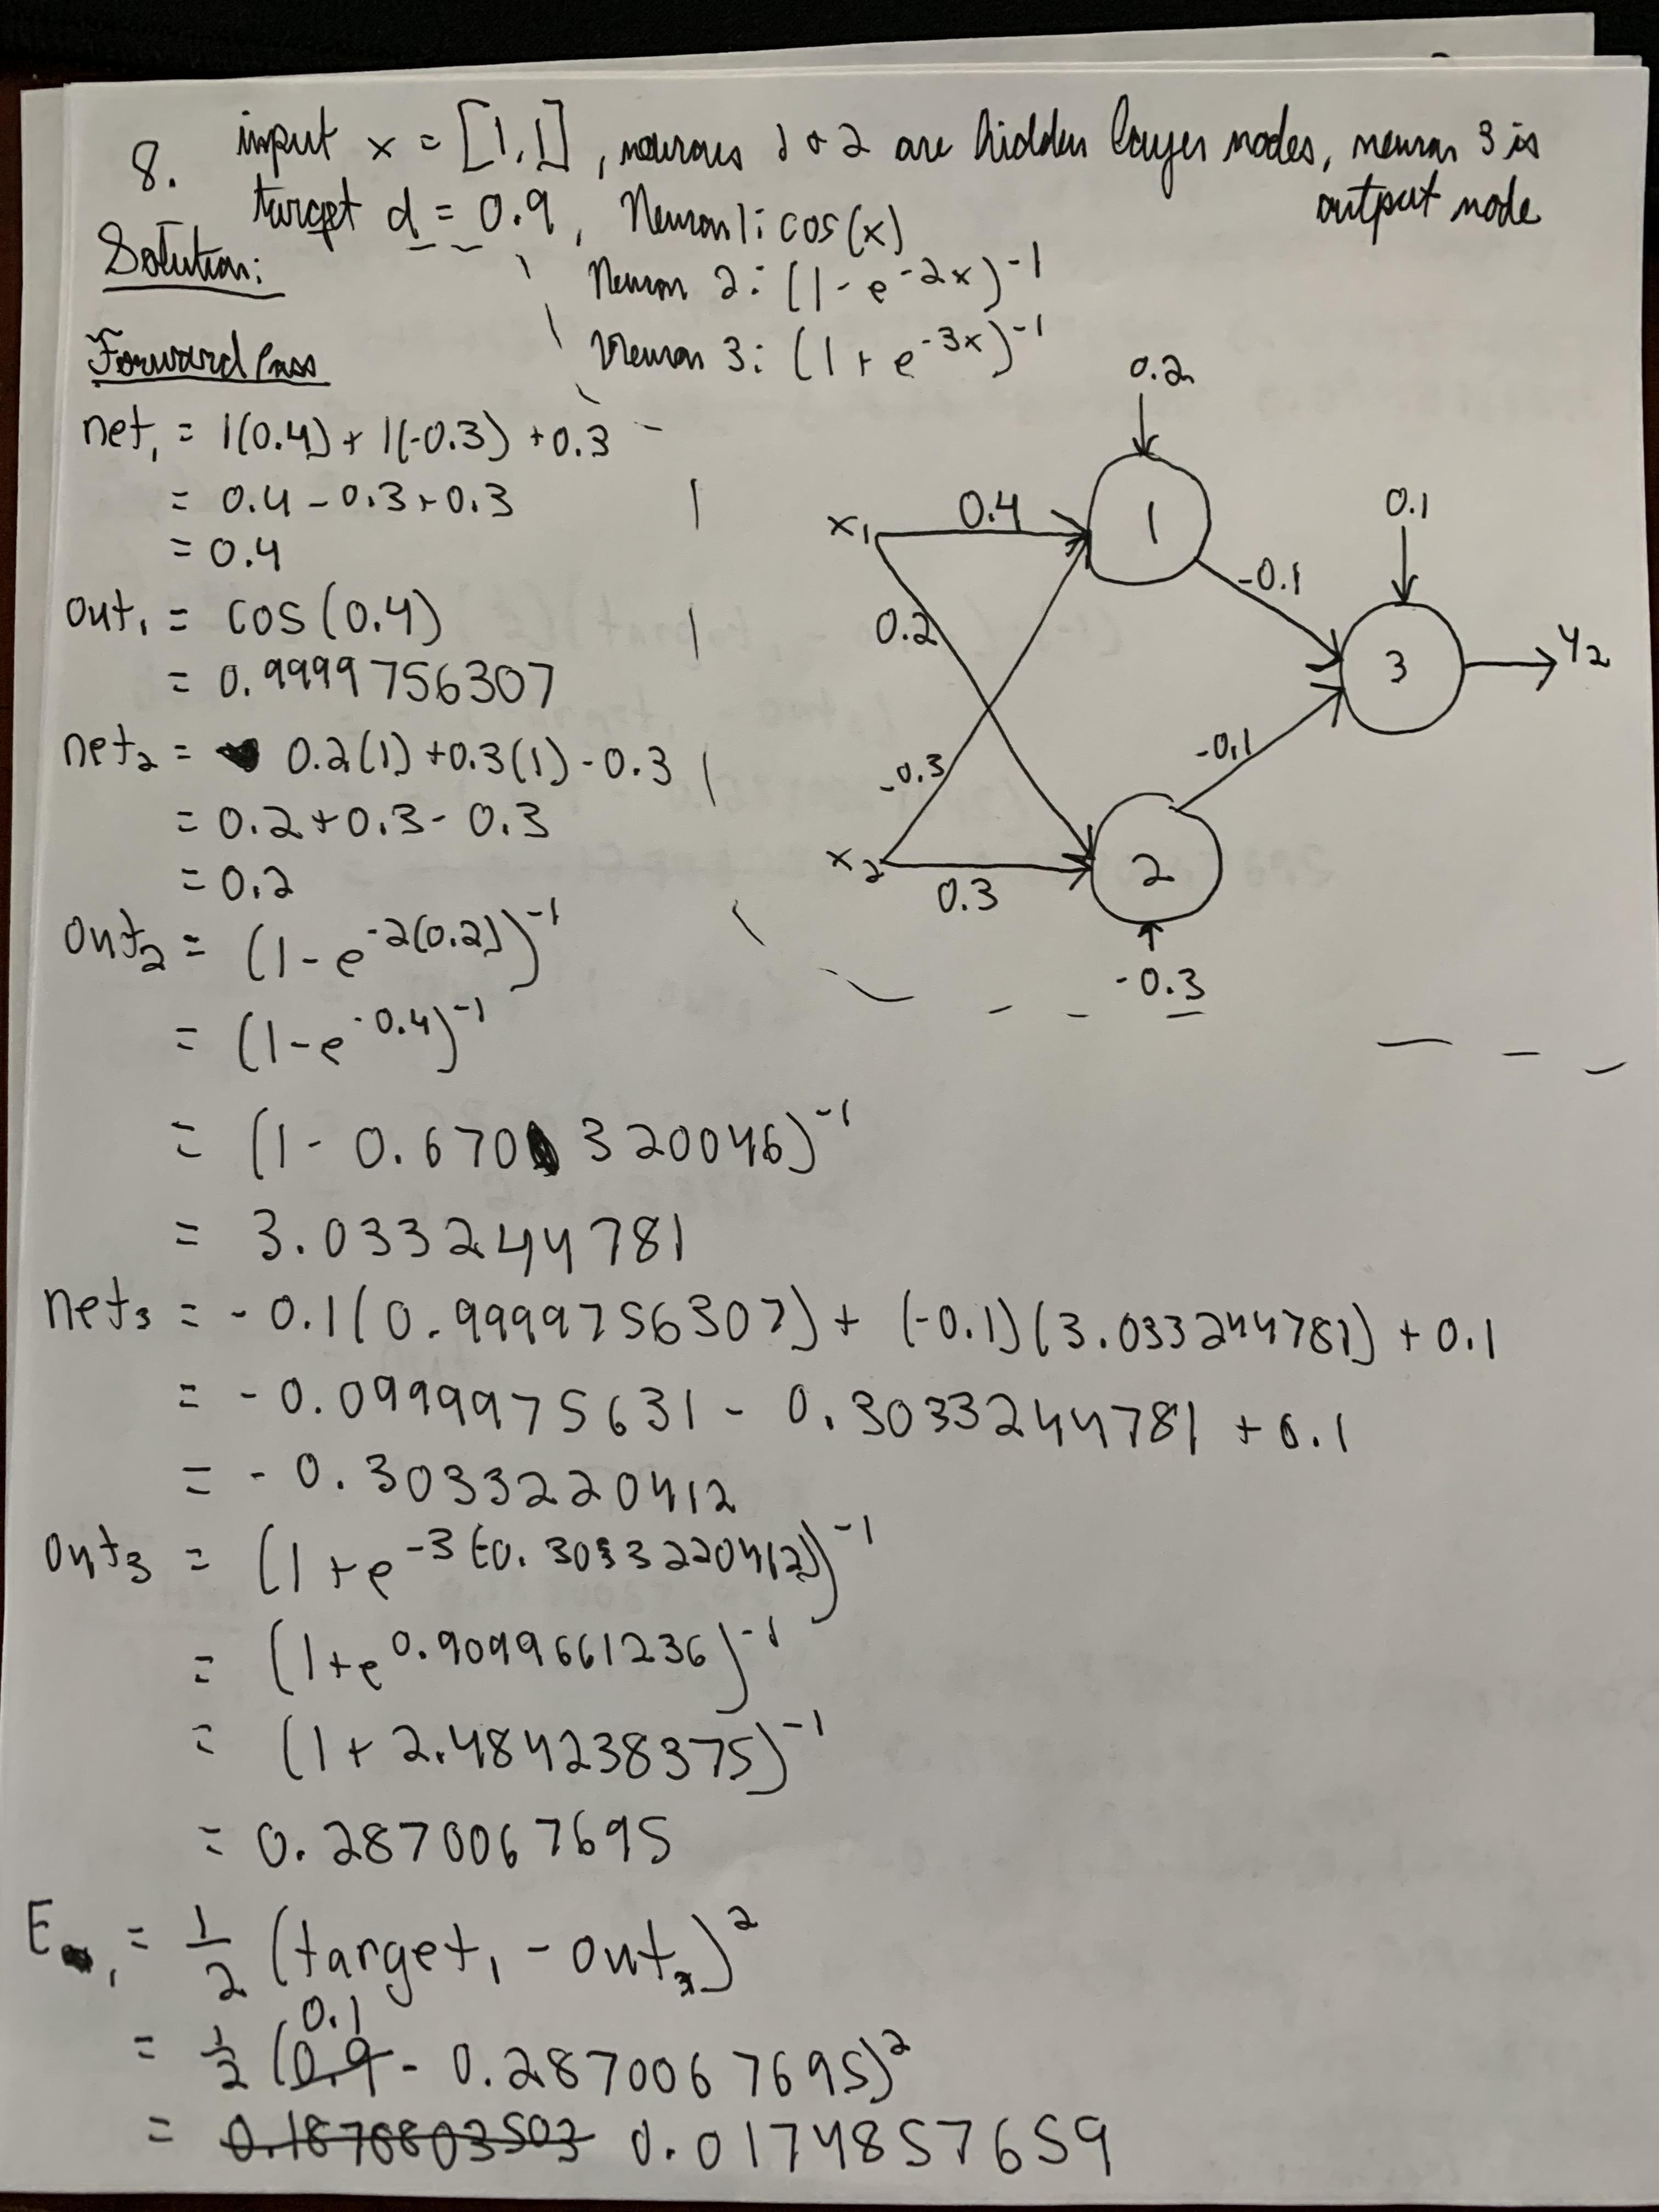 8. input x = [1,1], neurons 1 & 2 are hidden layer nodes, neuron 3 is
output node
target d = 0.9, Neuron 1: cos(x)
Solution:
Neuron 2: (1-e^-2x)^-1
Neuron 3: (1+e^-3x)^-1
Forward Pass
net₁ = 1(0.4) + 1(-0.3) + 0.3
= 0.4 - 0.3 + 0.3
= 0.4
out₁ = cos(0.4)
= 0.9999756307
net₂ = 0.2(1) + 0.3(1) - 0.3
= 0.2 + 0.3 - 0.3
= 0.2
out₂ = (1-e^-2(0.2))^-1
= (1-e^-0.4)^-1
= (1-0.670320046)^-1
= 3.033244781
0.2
x₁
0.4
1
0.1
-0.1
0.2
3
y₂
-0.3
-0.1
x₂
0.3
2
-0.3
net₃ = -0.1(0.9999756307) + (-0.1)(3.033244781) + 0.1
= -0.0999975631 - 0.3033244781 + 0.1
= -0.3033220412
out₃ = (1+e^-3(-0.3033220412))^-1
= (1+e^0.9099661236)^-1
= (1+2.484238375)^-1
= 0.2870067695
E₁ = 1/2 (target₁ - out₃)²
0.1
= 1/2 (0.9 - 0.2870067695)²
= 0.1878803503 0.0174857659